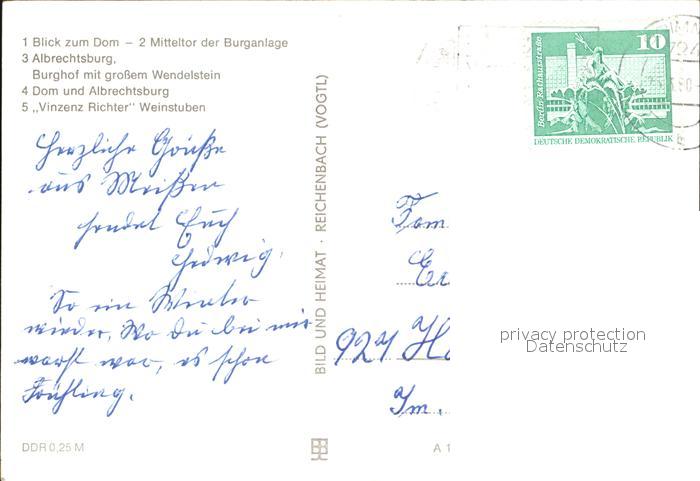 1 Blick zum Dom – 2 Mitteltor der Burganlage
3 Albrechtsburg,
Burghof mit großem Wendelstein
4 Dom und Albrechtsburg
5 „Vinzenz Richter" Weinstuben
Herzliche Grüße
aus Meißen
sendet Euch
Hedwig.
So ein Winter
wieder, Wo Du bei mir
warst war, es schon
Frühling.
DDR 0,25 M
BILD UND HEIMAT · REICHENBACH (VOGTL)
A 1
Berlin, Rathausstraße
10
DEUTSCHE DEMOKRATISCHE REPUBLIK
Fam
Er
924 Ha
Im.
privacy protection
Datenschutz